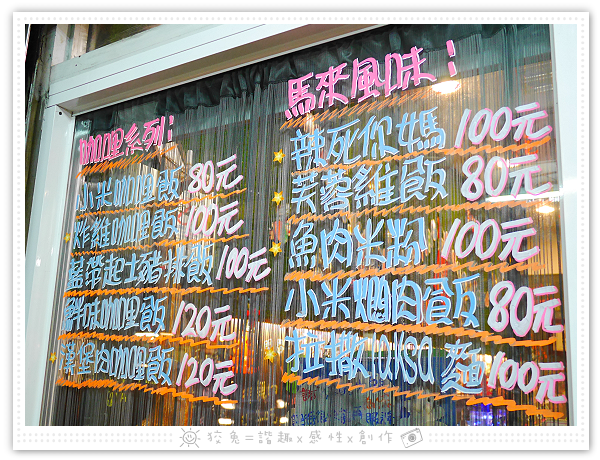 咖哩系列:
小米咖哩飯 80元
炸雞咖哩飯 100元
藍帶起士豬排飯 100元
鮮味咖哩飯 120元
漢堡肉咖哩飯 120元
馬來風味:
辣死你媽 100元
芙蓉雞飯 80元
魚肉米粉 100元
小米燜肉飯 80元
拉撒 laksa 麵 100元
狡兔=諧趣x感性x創作